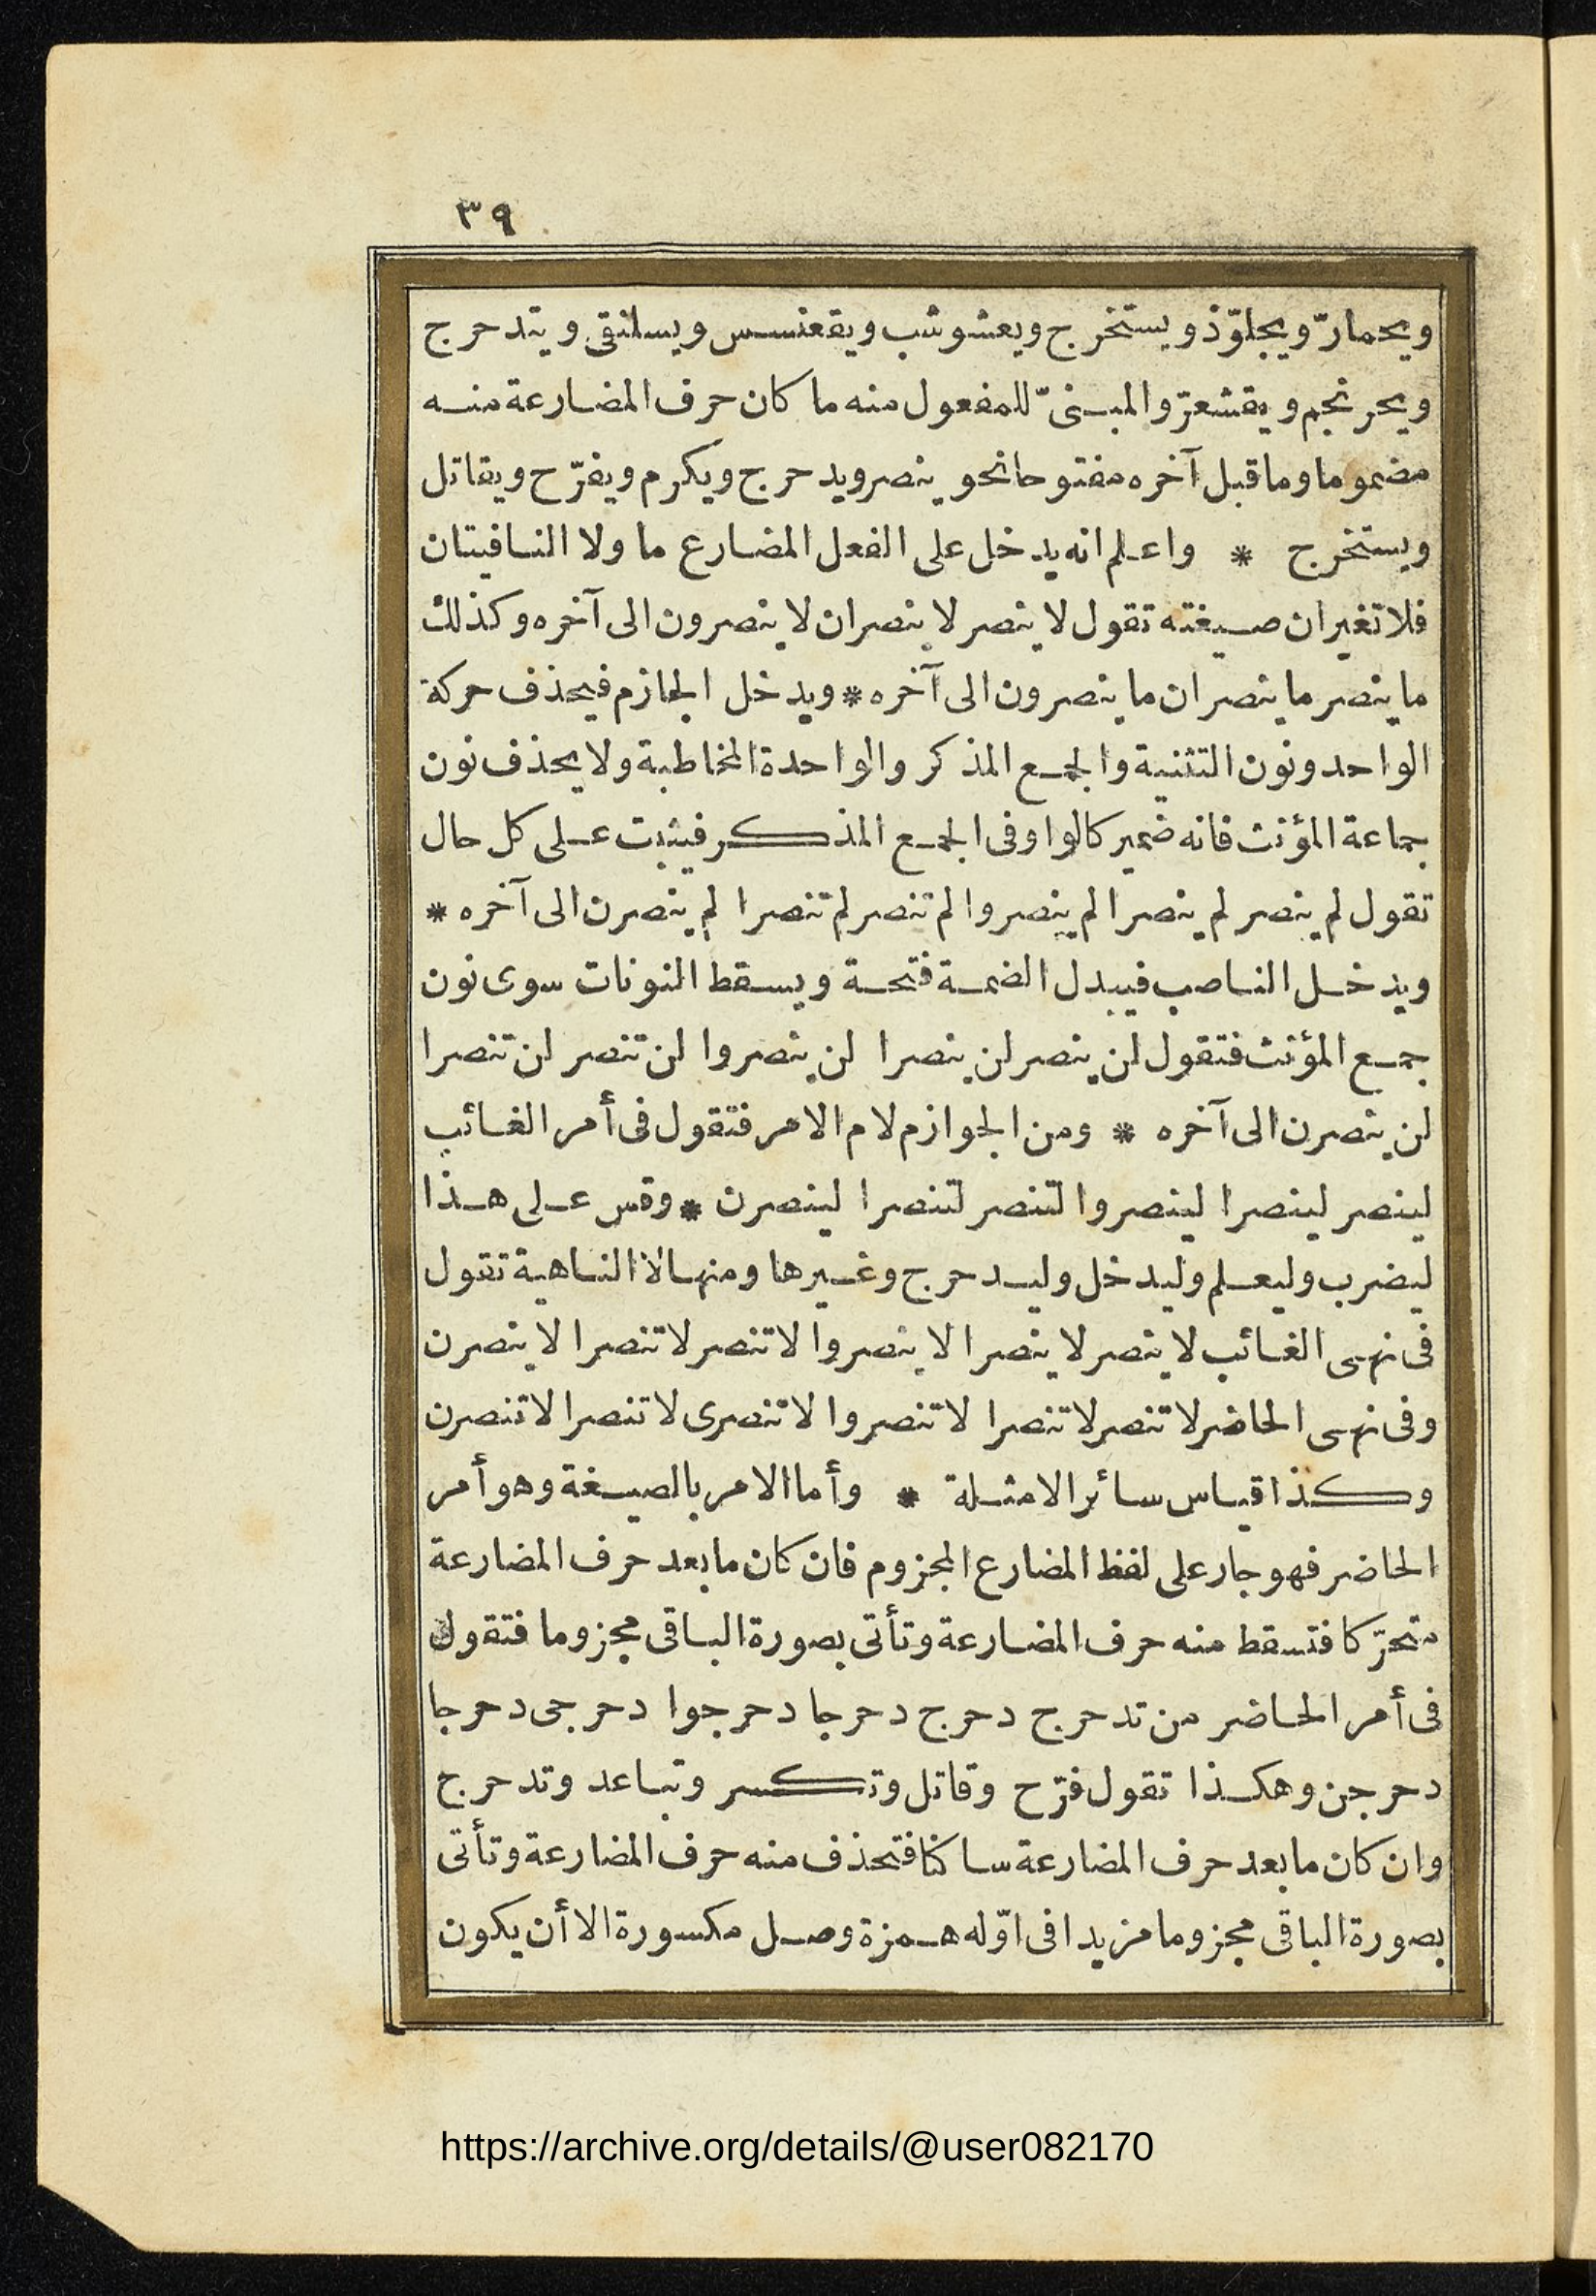 ٣٩
ويحمارّ ويجلوّذ ويستخرج ويعشوشب ويقعنسس ويسلنقى ويتدحرج
ويحرنجم ويقشعرّ والمبنىّ للمفعول منه ما كان حرف المضارعة منه
مضموما وما قبل آخره مفتوحا نحو ينصر ويدحرج ويكرم ويفرّح ويقاتل
ويستخرج * واعلم انه يدخل على الفعل المضارع ما ولا النافيتان
فلا تغيران صيغته تقول لا ينصر لا ينصران لا ينصرون الى آخره وكذلك
ما ينصر ما ينصران ما ينصرون الى آخره * ويدخل الجازم فيحذف حركة
الواحد ونون التثنية والجمع المذكر والواحدة المخاطبة ولا يحذف نون
جماعة المؤنث فانه ضمير كالواو فى الجمع المذكر فيثبت على كل حال
تقول لم ينصر لم ينصرا لم ينصروا لم تنصر لم تنصرا لم ينصرن الى آخره *
ويدخل الناصب فيبدل الضمة فتحة ويسقط النونات سوى نون
جمع المؤنث فتقول لن ينصر لن ينصرا لن ينصروا لن تنصر لن تنصرا
لن ينصرن الى آخره * ومن الجوازم لام الامر فتقول فى أمر الغائب
لينصر لينصرا لينصروا لتنصر لتنصرا لينصرن * وقس على هذا
ليضرب وليعلم وليدخل وليدحرج وغيرها ومنها لا الناهية تقول
فى نهى الغائب لا ينصر لا ينصرا لا ينصروا لا تنصر لا تنصرا لا ينصرن
وفى نهى الحاضر لا تنصر لا تنصرا لا تنصروا لا تنصرى لا تنصرا لا تنصرن
وكذا قياس سائر الامثلة * وأما الامر بالصيغة وهو أمر
الحاضر فهو جار على لفظ المضارع المجزوم فان كان ما بعد حرف المضارعة
متحرّكا فتسقط منه حرف المضارعة وتأتى بصورة الباقى مجزوما فتقول
فى أمر الحاضر من تدحرج دحرج دحرجا دحرجوا دحرجى دحرجا
دحرجن وهكذا تقول فرّح وقاتل وتكسر وتباعد وتدحرج
وان كان ما بعد حرف المضارعة ساكنا فتحذف منه حرف المضارعة وتأتى
بصورة الباقى مجزوما مزيدا فى اوّله همزة وصل مكسورة الا أن يكون
https://archive.org/details/@user082170